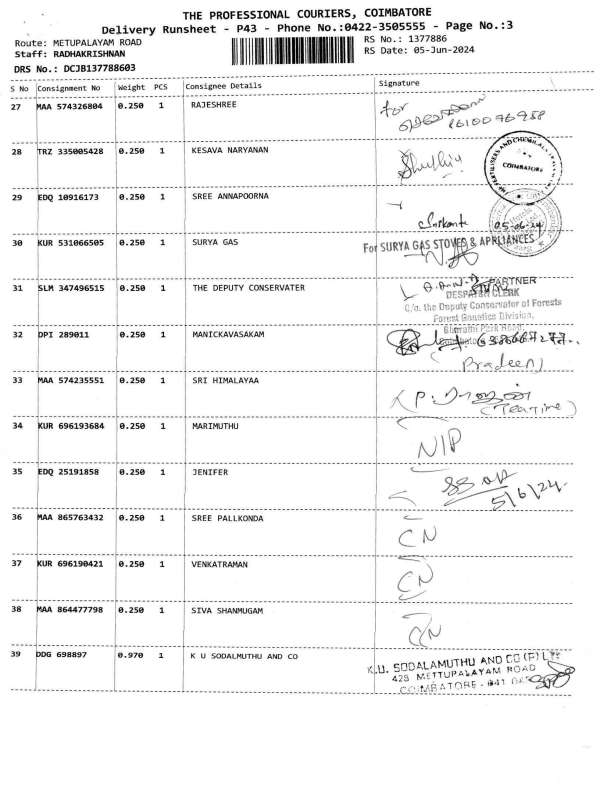 THE PROFESSIONAL COURIERS, COIMBATORE
Delivery Runsheet - P43 - Phone No.:0422-3505555 - Page No.:3
Route: METUPALAYAM ROAD RS No.: 1377886
Staff: RADHAKRISHNAN RS Date: 05-Jun-2024
DRS No.: DCJB137788603
S No Consignment No Weight PCS Consignee Details Signature
27 MAA 574326804 0.250 1 RAJESHREE
for
8610096958
28 TRZ 335005428 0.250 1 KESAVA NARYANAN
COIMBATORE
29 EDQ 10916173 0.250 1 SREE ANNAPOORNA
05-06-24
30 KUR 531066505 0.250 1 SURYA GAS
For SURYA GAS STOVES & APPLIANCES
PARTNER
31 SLM 347496515 0.250 1 THE DEPUTY CONSERVATER
DESPATCH CLERK
C/o. the Deputy Conservator of Forests
Forest Genetics Division,
Bharathi Park Road,
32 DPI 289011 0.250 1 MANICKAVASAKAM
(Pradeep)
33 MAA 574235551 0.250 1 SRI HIMALAYAA
34 KUR 696193684 0.250 1 MARIMUTHU
N/P
35 EDQ 25191858 0.250 1 JENIFER
5/6/24
36 MAA 865763432 0.250 1 SREE PALLKONDA
CN
37 KUR 696190421 0.250 1 VENKATRAMAN
CN
38 MAA 864477798 0.250 1 SIVA SHANMUGAM
CN
39 DDG 698897 0.970 1 K U SODALMUTHU AND CO
K.U. SODALAMUTHU AND CO (P) LTD
428 METTUPALAYAM ROAD
COIMBATORE - 641